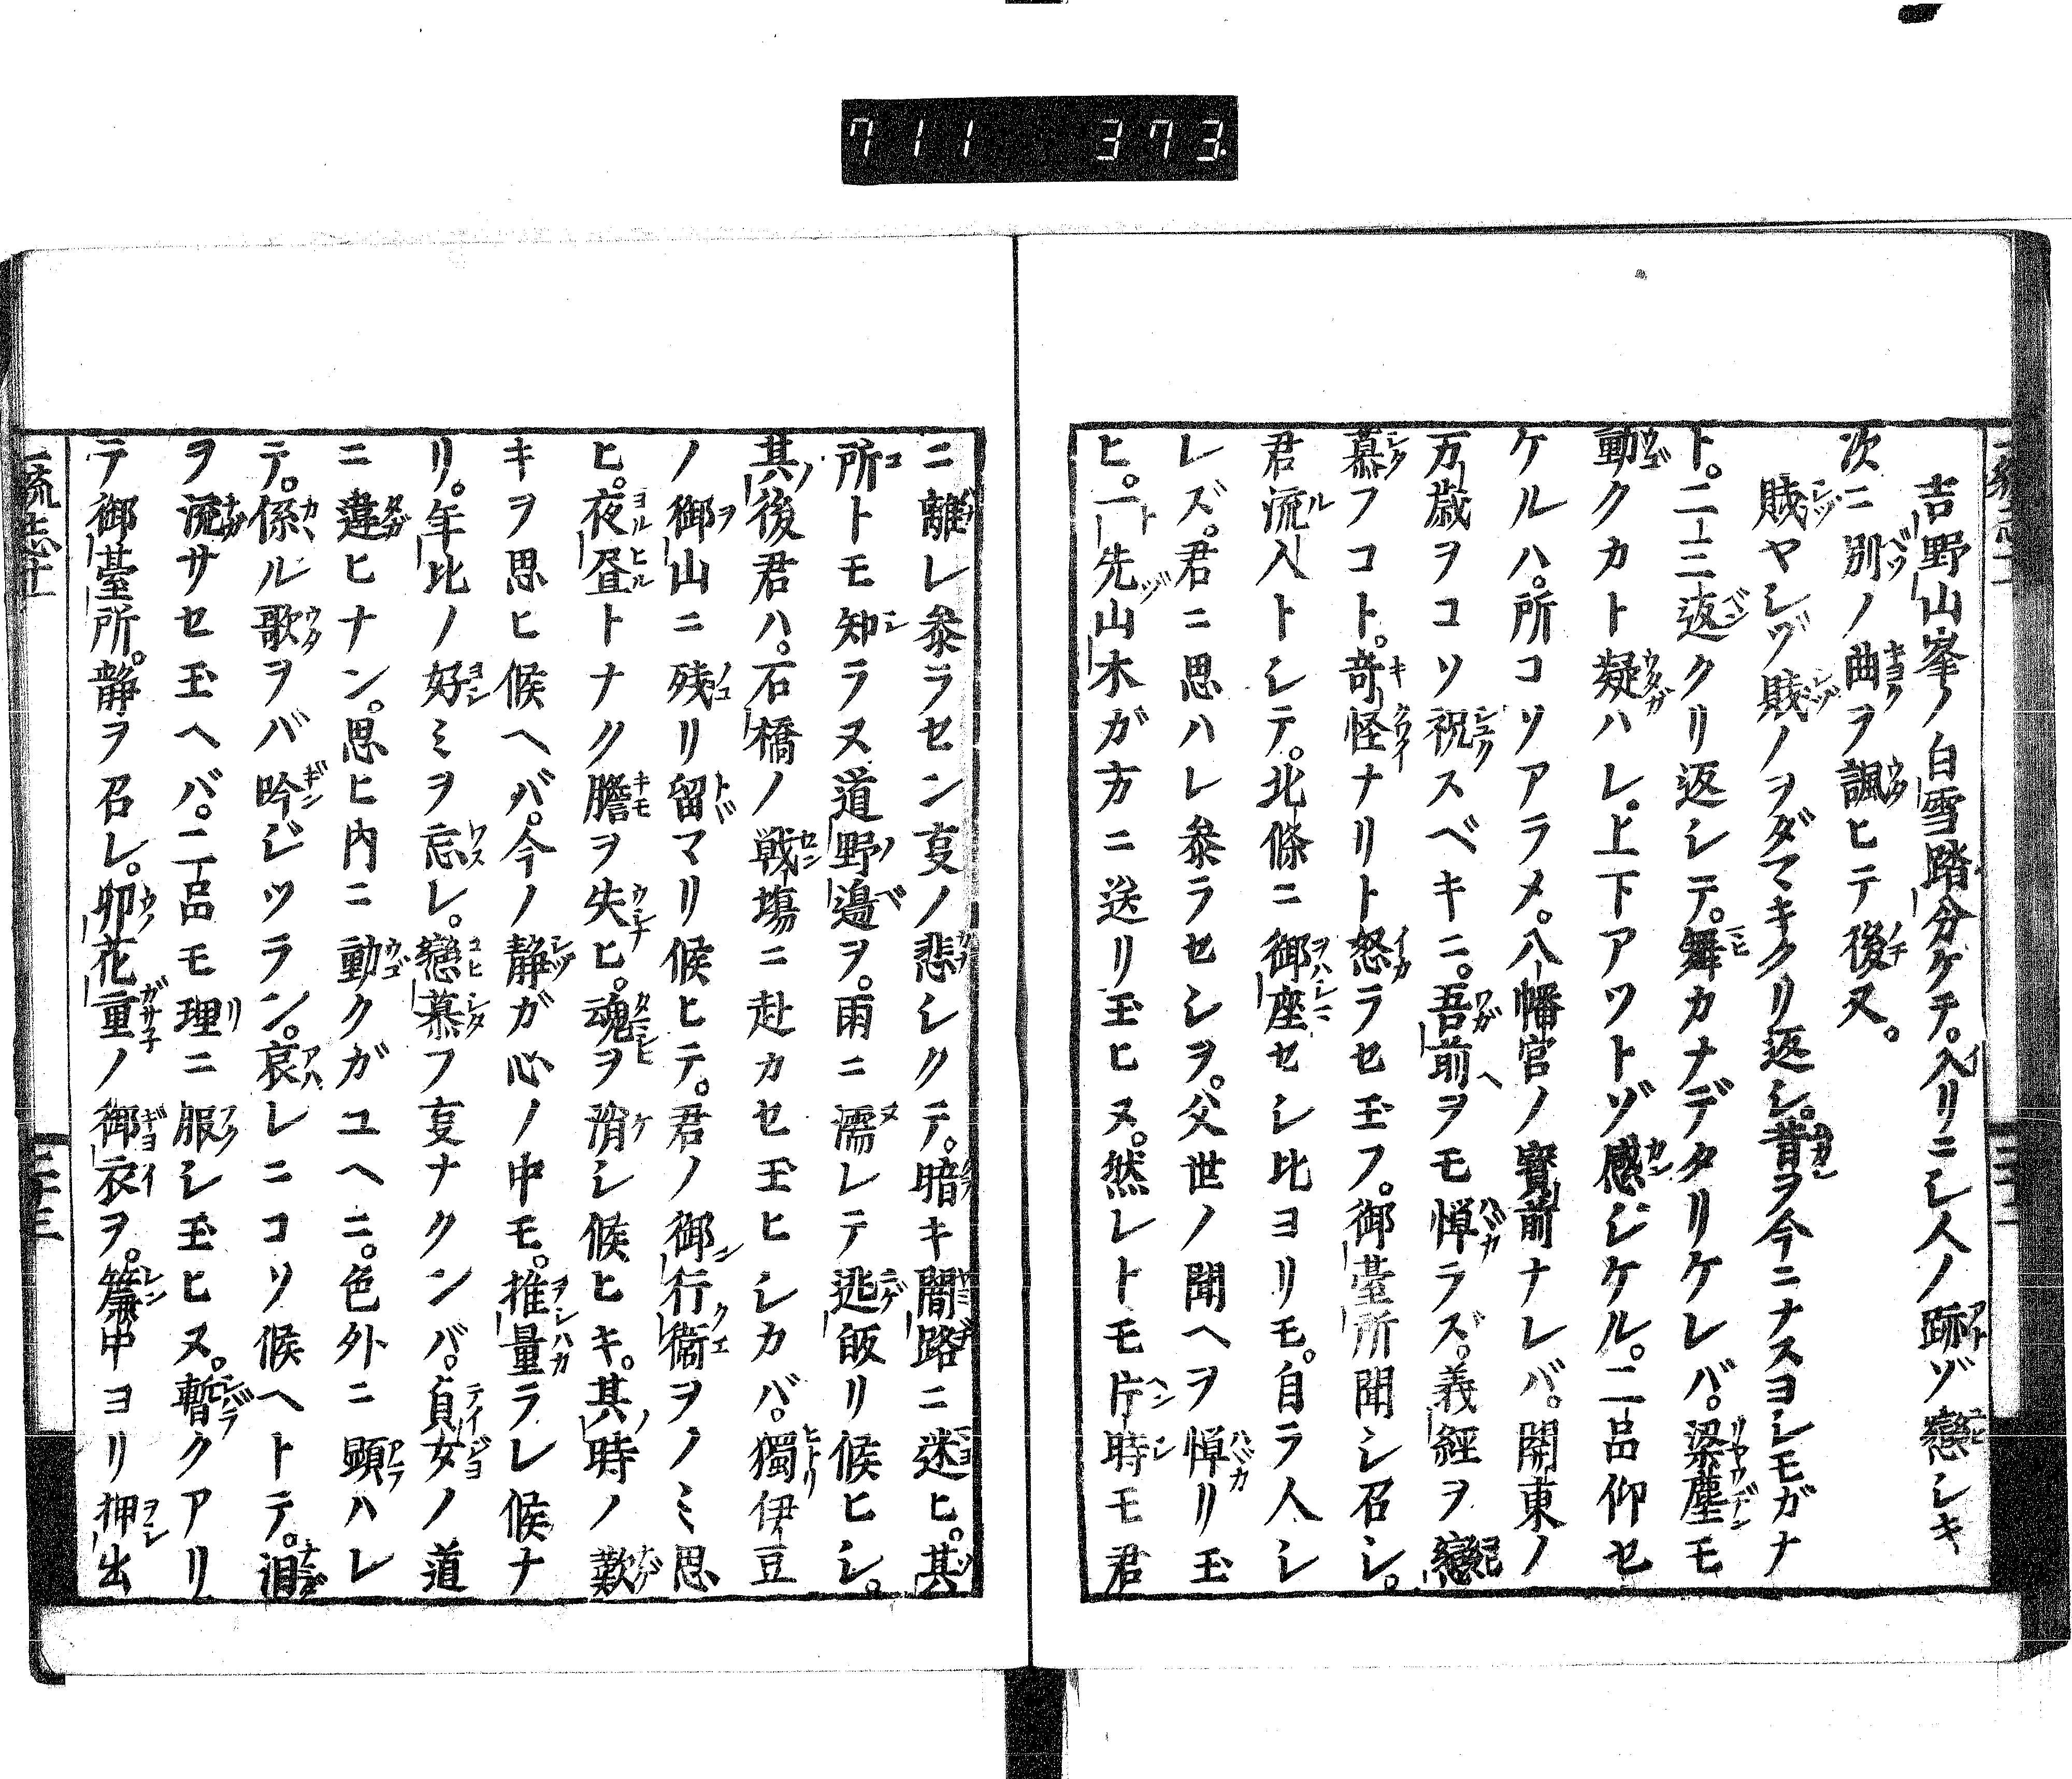 711 373.
吉野山峯ノ白雪踏分ケテ。入リニシ人ノ跡ゾ戀シキ
次ニ別ノ曲ヲ諷ヒテ後又。
賤ヤシヅ賤ノヲダマキクリ返シ。昔ヲ今ニナスヨシモガナ
ト。二三返クリ返シテ。舞カナデタリケレバ。梁塵モ
動クカト疑ハレ。上下アツトゾ感ジケル。二品仰セ
ケルハ。所コソアラメ。八幡宮ノ寶前ナレバ。關東ノ
万歳ヲコソ祝スベキニ。吾前ヲモ憚ラズ。義經ヲ戀
慕フコト。奇怪ナリト怒ラセ玉フ。御臺所聞シ召シ。
君流人トシテ。北條ニ御座セシ比ヨリモ。自ラ人シ
レズ。君ニ思ハレ參ラセシヲ。父世ノ聞ヘヲ憚リ玉
ヒ。一先山木ガ方ニ送リ玉ヒヌ。然レトモ片時モ君
ニ離レ參ラセン叓ノ悲シクテ。暗キ闇路ニ迷ヒ。其
所トモ知ラヌ道野邉ヲ。雨ニ濡レテ迯皈リ候ヒシ。
其後君ハ。石橋ノ戦塲ニ赴カセ玉ヒシカバ。獨伊豆
ノ御山ニ残リ留マリ候ヒテ。君ノ御行衞ヲノミ思
ヒ。夜昼トナク膽ヲ失ヒ。魂ヲ消シ候ヒキ。其時ノ歎
キヲ思ヒ候ヘバ。今ノ静ガ心ノ中モ。推量ラレ候ナ
リ。年比ノ好ミヲ忘レ。戀慕フ叓ナクンバ。貞女ノ道
ニ違ヒナン。思ヒ内ニ動クガユヘニ。色外ニ顕ハレ
テ。係ル歌ヲバ吟ジツラン。哀レニコソ候ヘトテ。泪
ヲ流サセ玉ヘバ。二品モ理ニ服シ玉ヒヌ。暫クアリ
テ御臺所。静ヲ召レ。卯花重ノ御衣ヲ。簾中ヨリ押出